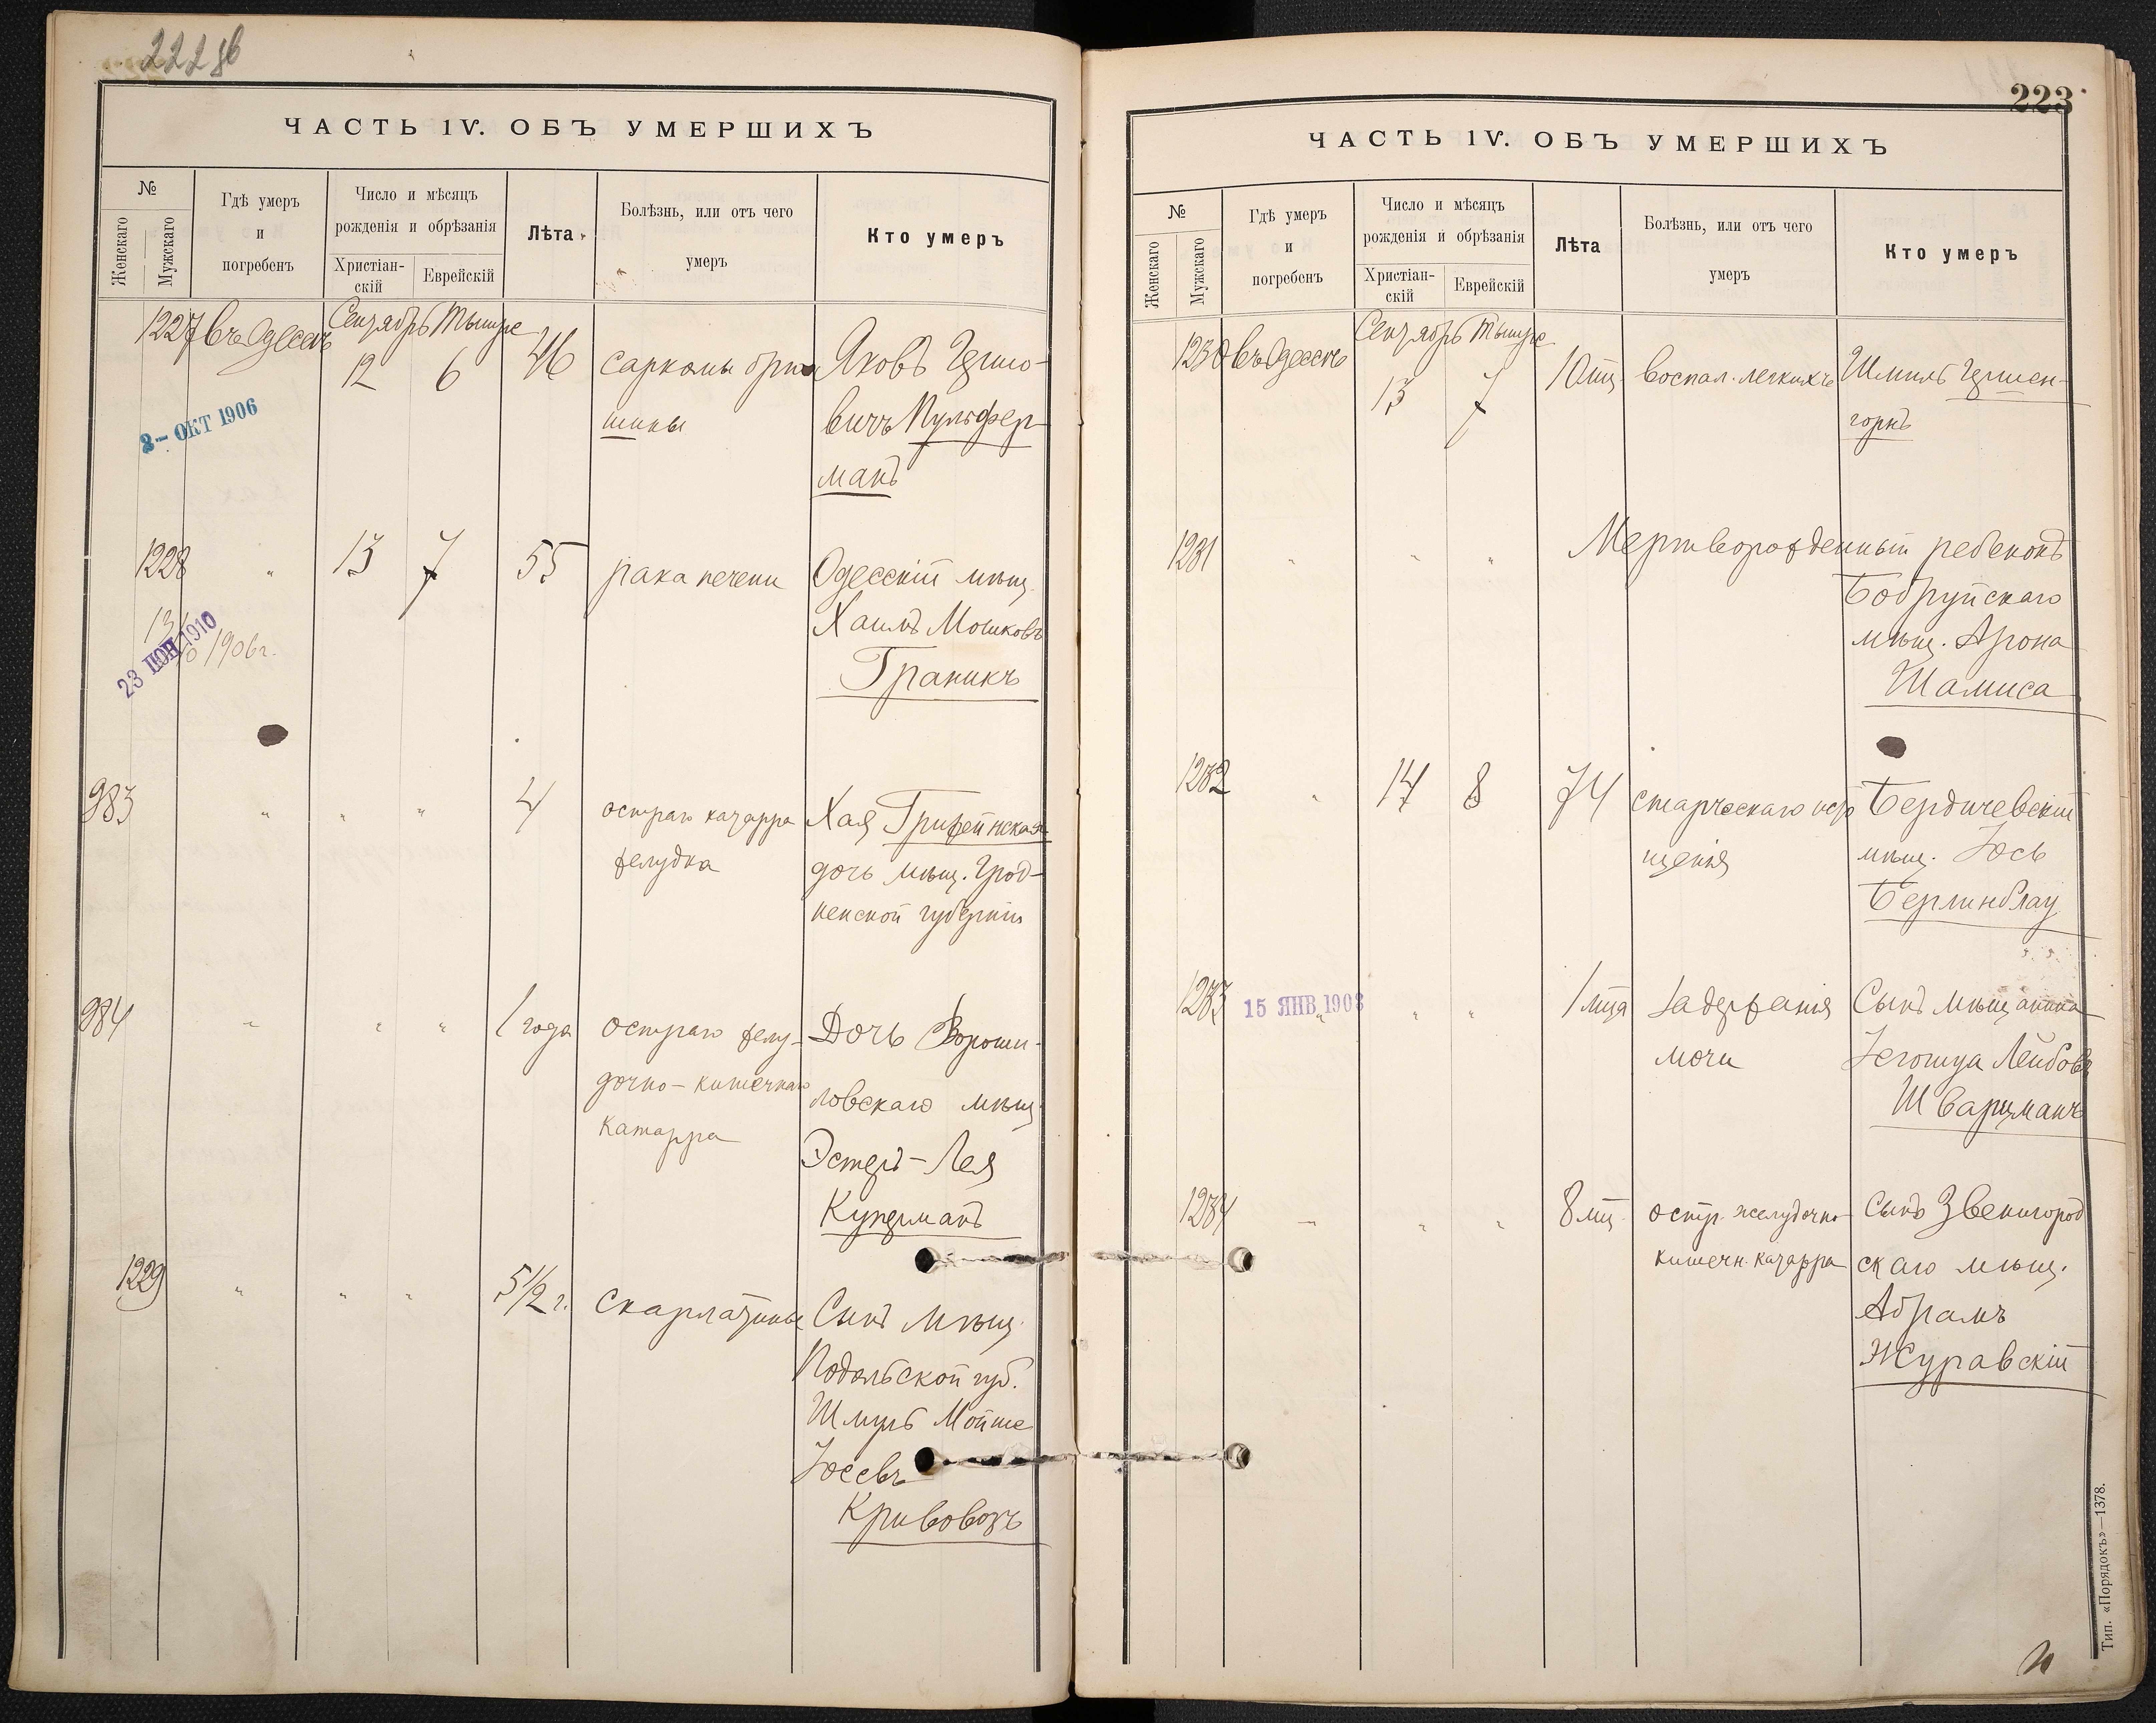 222 об
ЧАСТЬ IV. ОБЪ УМЕРШИХЪ
№
Женскаго
Мужскаго
Гдѣ умеръ
и
погребенъ
Число и мѣсяцъ
рожденія и обрѣзанія
Христіан-
скій
Еврейскій
Лѣта
Болѣзнь, или отъ чего
умеръ
Кто умеръ
1227 въ Одессѣ Сентябрь Тишре
12 6 46 саркомы брю- Яковъ
шины вичъ Пульфер-
манъ
2 - ОКТ 1906
1228 " 13 7 55 рака печени Одесскій мѣщ.
Хаимъ Мошковъ
Граникъ
1906 г.
23 1910
983 " " " 4 остраго катарра Хая
желудка дочь мѣщ. Грод-
ненской губерніи
984 " " " 1 года остраго желу- Дочь Вороши-
дочно-кишечнаго ловскаго мѣщ.
катарра Эстеръ-Лея
Куперманъ
1229 " " " 5 1/2 г. скарлатины Сынъ мѣщ.
Подольской губ.
Шмуль Мойше
Іосевъ
Кривовозъ
223
ЧАСТЬ IV. ОБЪ УМЕРШИХЪ
№
Женскаго
Мужскаго
Гдѣ умеръ
и
погребенъ
Число и мѣсяцъ
рожденія и обрѣзанія
Христіан-
скій
Еврейскій
Лѣта
Болѣзнь, или отъ чего
умеръ
Кто умеръ
1230 въ Одессѣ Сентябрь Тишре
13 7 10 мц. воспал. легкихъ Шмиль Гершен-
горнъ
1231 " " " Мертворожденный ребенокъ
Бобруйскаго
мѣщ. Арона
Шамиса
1232 " 14 8 74 старческаго исто- Бердичевскій
щенія мѣщ. Іось
Берлинблау
1233 15 ЯНВ 1908 " " " 1 мца задержанія Сынъ мѣщанина
мочи Іегошуа Лейбовъ
Шварцманъ
1234 " " " 8 мц. остр. желудочно- Сынъ Звенигород
кишечн. катарра скаго мѣщ.
Абрамъ
Журавскій
Тип. «Порядокъ»—1378.